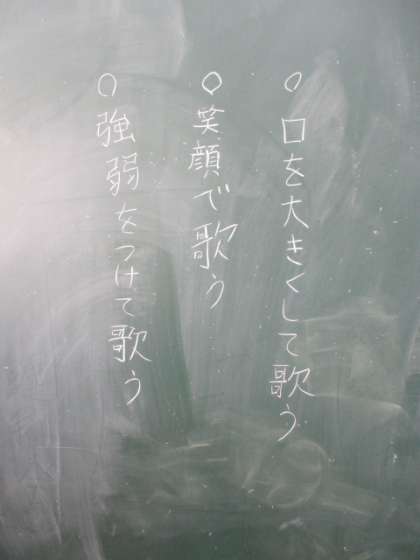 ○口を大きくして歌う
○笑顔で歌う
○強弱をつけて歌う